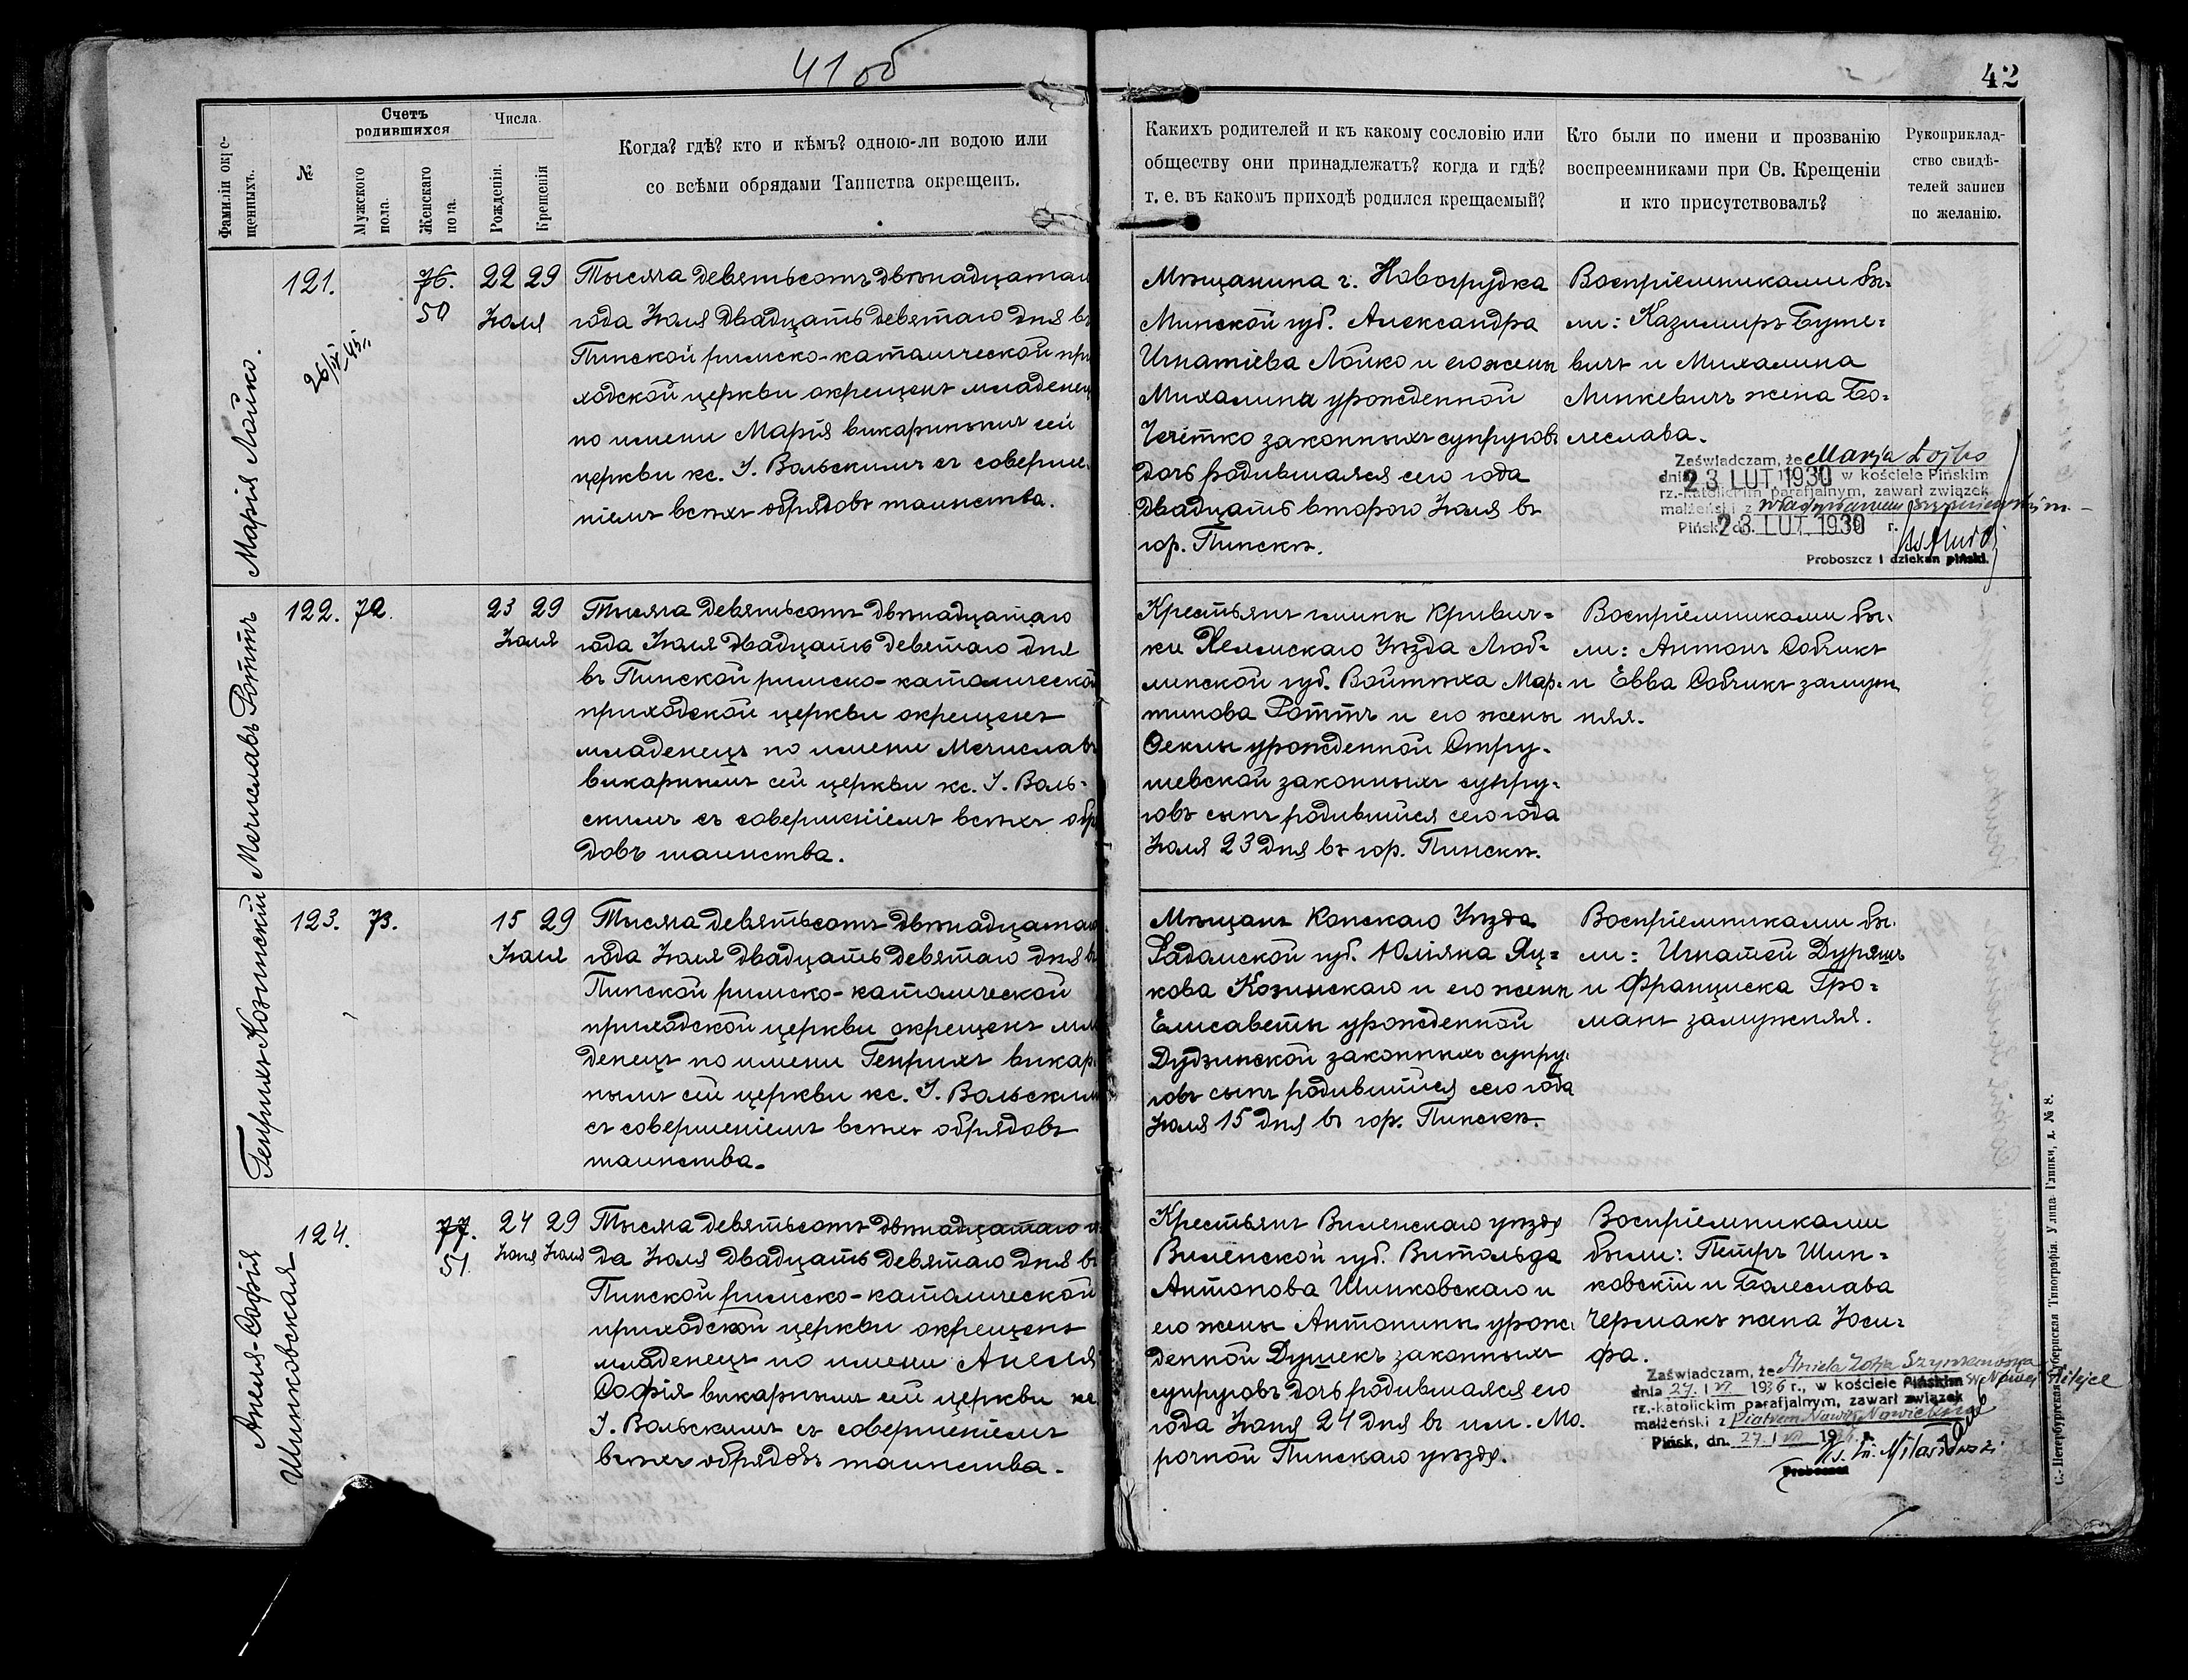 41 об
42
Фамиліи окре-
щенныхъ.
№
Счетъ
родившихся
Мужского
пола.
Женскаго
пола.
Числа.
Рожденія.
Крещенія
Когда? гдѣ? кто и кѣмъ? одною-ли водою или
со всѣми обрядами Таинства окрещенъ.
Какихъ родителей и къ какому сословію или
обществу они принадлежатъ? когда и гдѣ?
т. е. въ какомъ приходѣ родился крещаемый?
Кто были по имени и прозванію
воспреемниками при Св. Крещеніи
и кто присутствовалъ?
Рукоприклад-
ство свидѣ-
телей записи
по желанію.
Марія Лойко.
121.
76.
50
22 29
Іюля
Тысяча девятьсотъ двѣнадцатаго
года Іюля двадцать девятаго дня въ
Пинской римско-католической при
ходской церкви окрещенъ младенец
по имени Марія викарнымъ сей
церкви кс. І. Вольскимъ съ соверше-
ніемъ всѣхъ обрядовъ таинства.
Мѣщанина г. Новогрудка
Минской губ. Александра
Игнатіева Лойко и его жены
Михалины урожденной
законныхъ супруговъ
дочь родившаяся сего года
двадцать второго Іюля въ
гор. Пинскѣ.
Воспріемниками бы-
ли: Казимиръ Буте-
вичъ и Михалина
Минкевичъ жена Бо-
леслава.
Zaświadczam, że Marja Łojko
dnia 23 LUT. 1930 w kościele Pińskim
rz.-katolickim parafjalnym, zawarł związek
małżeński z
Pińsk, d. 23 LUT. 1930 r.
Proboszcz i dziekan piński.
Мечиславъ Роттъ
122. 72.
23 29
Іюля
Тысяча девятьсотъ двѣнадцатаго
года Іюля двадцать девятаго дня
въ Пинской римско-католической
приходской церкви окрещенъ
младенецъ по имени Мечиславъ
викарнымъ сей церкви кс. І. Воль-
скимъ съ совершеніемъ всѣхъ обр
довъ таинства.
Крестьянъ гмины Кривич-
ки Холмскаго Уѣзда Люб-
линской губ. Войтѣха Мар-
тинова Роттъ и его жены
Ѳеклы урожденной Стру-
шевской законныхъ супру-
говъ сынъ родившійся сего года
Іюля 23 дня въ гор. Пинскѣ.
Воспріемниками бы-
ли: Антонъ Собчикъ
и Евва Собчикъ замуж-
няя.
Генрихъ Козинскій
123. 73.
15 29
Іюля
Тысяча девятьсотъ двѣнадцатаго
года Іюля двадцать девятаго дня въ
Пинской римско-католической
приходской церкви окрещенъ мла
денецъ по имени Генрихъ викар-
нымъ сей церкви кс. І. Вольским
съ совершеніемъ всѣхъ обрядовъ
таинства.
Мѣщанъ Конскаго Уѣзда
Радомской губ. Юліяна Яц-
кова Козинскаго и его жены
Елисаветы урожденной
Дудзинской законныхъ супру-
говъ сынъ родившійся сего года
Іюля 15 дня въ гор. Пинскѣ.
Воспріемниками бы-
ли: Игнатій Дуряшъ
и Франциска Гро-
манъ замужняя.
Анеля-Софія
Шинковская
124.
77.
51.
24 29
Іюля Іюля
Тысяча девятьсотъ двѣнадцатаго го
да Іюля двадцать девятаго дня въ
Пинской римско-католической
приходской церкви окрещенъ
младенецъ по имени Анеля
Софія викарнымъ сей церкви кс
І. Вольскимъ съ совершеніемъ
всѣхъ обрядовъ таинства.
Крестьянъ Виленскаго уѣзда
Виленской губ. Витольда
Антонова Шинковскаго и
его жены Антонины урож-
денной Душекъ законныхъ
супруговъ дочь родившаяся сего
года Іюля 24 дня въ им. Мо-
рочной Пинскаго уѣзда.
Воспріемниками
были: Петръ Шин-
ковскій и Болеслава
Чермакъ жена Іоси-
фа.
Zaświadczam, że Aniela Zofja Szynkowska
dnia 27. VI 1936 r., w kościele Pińskim w Nowej Wilejce
rz.-katolickim parafjalnym, zawarł związek
małżeński z Piotrem
Pińsk, dn. 27. VII 1936 r.
Proboszcz
С.-Петербургская Губернская Типографія. Улица Глинки, д. № 8.